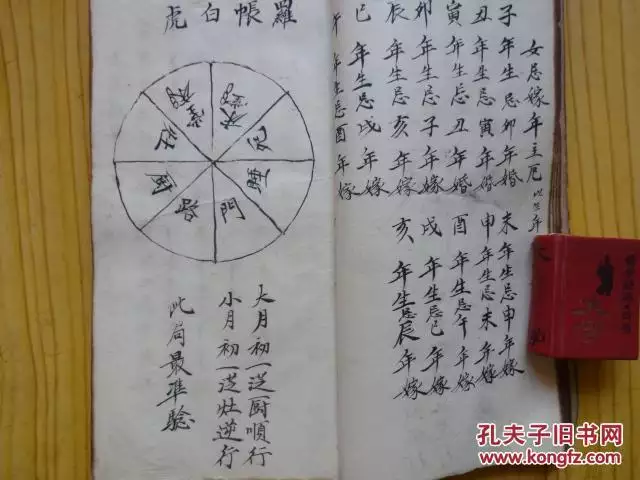 女忌嫁年主厄
子年生忌卯年婚
丑年生忌寅年婚
寅年生忌丑年婚
卯年生忌子年嫁
辰年生忌亥年嫁
巳年生忌戌年嫁
午年生忌酉年嫁
未年生忌申年嫁
申年生忌未年嫁
酉年生忌午年嫁
戌年生忌巳年嫁
亥年生忌辰年嫁
羅帳白虎
門
大月初一從厨順行
小月初一從灶逆行
此局最準驗
孔夫子旧书网
www.kongfz.com